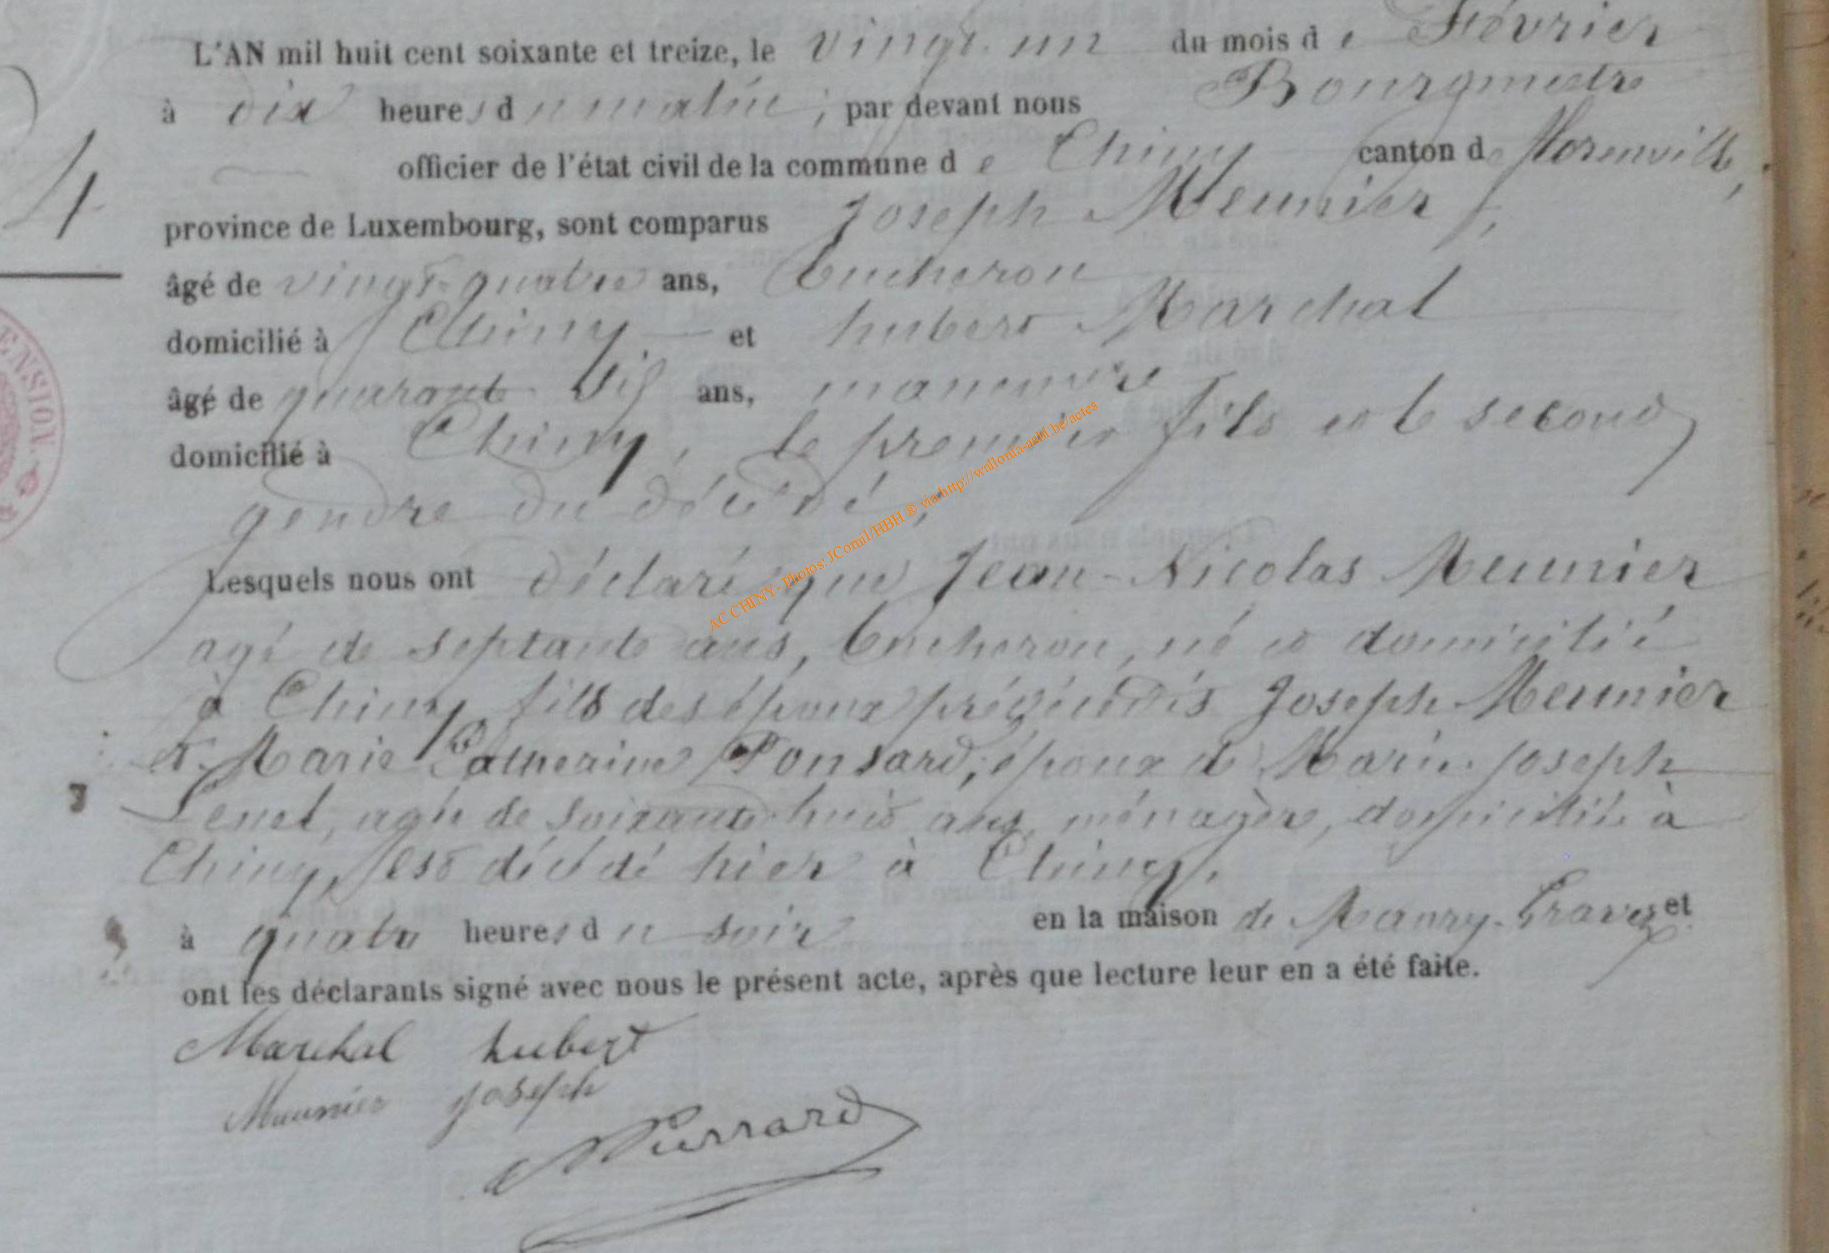 L'AN mil huit cent soixante et treize, le vingt-un du mois de Février
à dix heures du matin, par devant nous Bourgmestre
officier de l'état civil de la commune de Chiny canton de Florenville,
province de Luxembourg, sont comparus Joseph Meunier,
âgé de vingt-quatre ans, bucheron
domicilié à Chiny et hubert Marchal
âgé de quarante ans, manouvre
domicilié à Chiny, le premier fils et le second
gendre du décédé,
Lesquels nous ont déclaré que Jean-Nicolas Meunier
agé de septante ans, bucheron, né et domicilié
à Chiny, fils des époux prédécédés Joseph Meunier
et Marie Catherine Ponsard, époux de Marie-Joseph
agée de soixante-huit ans, ménagère, domiciliée à
Chiny, est décédé hier à Chiny,
à quatre heures du soir en la maison de et
ont les déclarants signé avec nous le présent acte, après que lecture leur en a été faite.
Marchal hubert
Meunier Joseph
4
ENSION.
AC CHINY- Photos: JComil/HBH @ via http://wallonia-asbl.be/actes